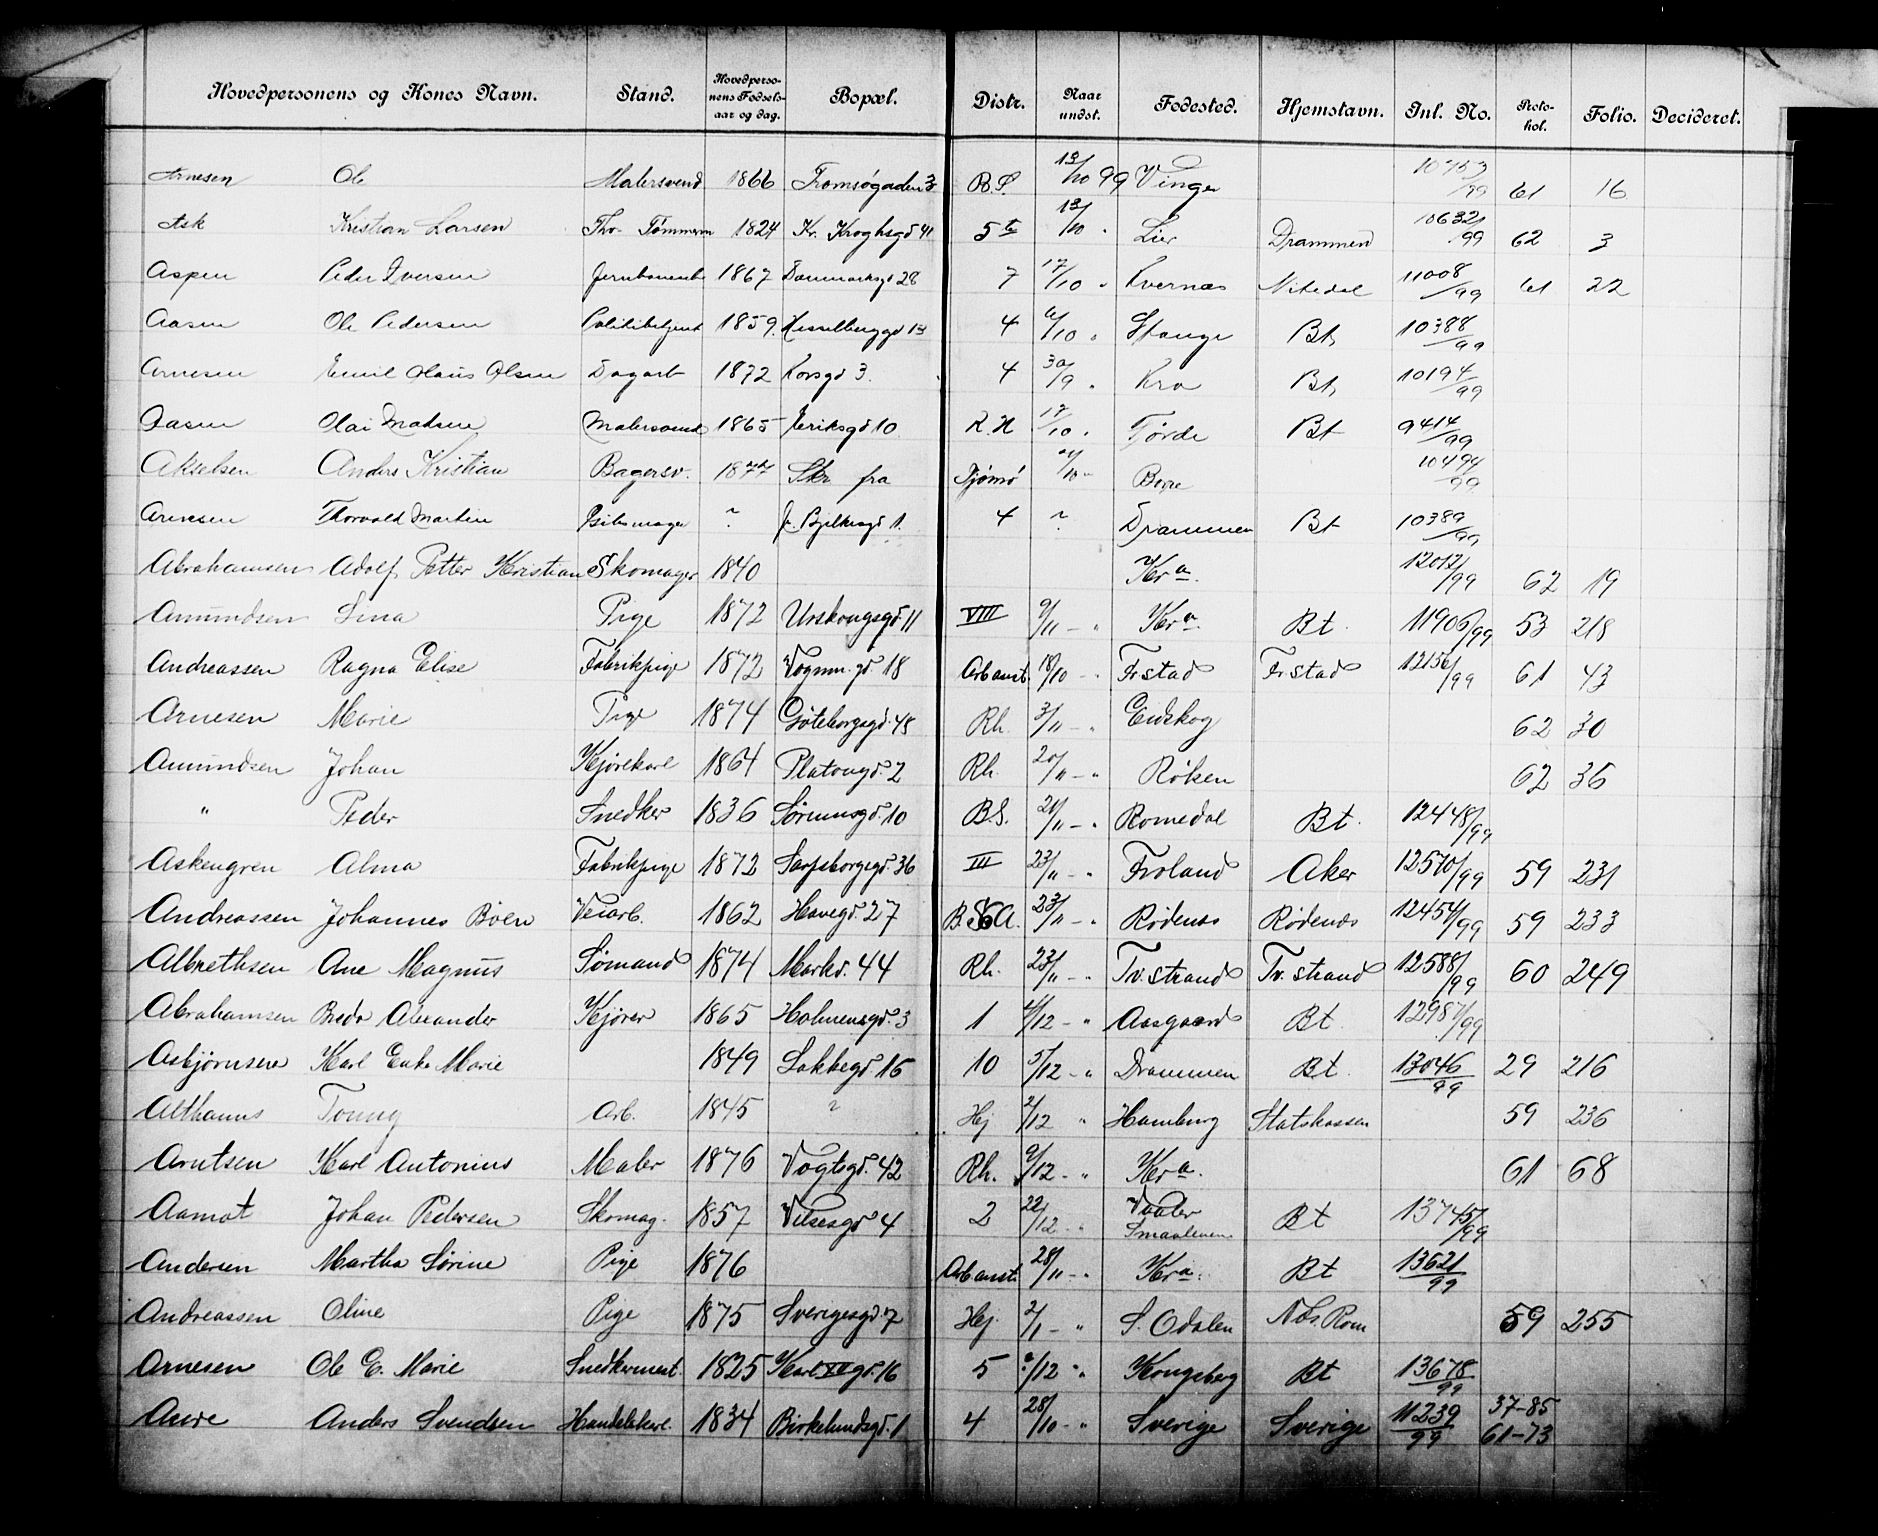 Hovedpersonens og Kones Navn. Stand. Hovedpersonens Fødselsaar og dag. Bopæl. Distr. Naar undst. Fødested. Hjemstavn. Inl. No. Protokol. Folio. Decideret.
Arnesen Ole Malersvend 1866 Tromsøgaden 3 B.S. 13/10 99 Vinger 10753/99 61 16
Ask Kristian Larsen Fhv. Tømmerm 1824 Kr. Kroghsgd 41 5te 13/10 " Lier Drammen 10632/99 62 3
Aspen Peder Iversen 1867 Danmarksgd 28 7 17/10 " Kvernæs Nitedal 11008/99 61 22
Aasen Ole Pedersen Politibetjent 1859. Hesselberggd 13 4 6/10 " Stange Bt, 10388/99
Arnesen Emil Olaus Olsen Dagarb 1872 Korsgd 3. 4 30/9 " Kra Bt, 10194/99
Aasen Olai Madsen Malersvend 1865 Eriksgd 10 R.H 17/10 " Førde Bt 9414/99
Akselsen Anders Kristian Bagersv. 1877 Skr fra Tjømø /10 " 10494/99
Arnesen Thorvald Martin ? Bjelkesgd 1. 4 ? Drammen Bt 10389/99
Abrahamsen Adolf Petter Kristian Skomager 1840 Kra. 12012/99 62 19
Amundsen Lina Pige 1872 Urskougsgd 11 VIII 9/11 - " Kra. Bt. 11906/99 53 218
Andreassen Ragna Elise Fabrikpige 1872 Vognm.gd. 18 Arbanst. 18/10 - " Frstad Frstad 12156/99 61 43
Arnesen Marie Pige 1874 Göteborgsgd. 45 Rh. 3/11 - " Eidskog 62 30
Amundsen Johan Kjørekarl 1864 Platougd. 2 Rh. 20/11 - " Røken 62 36
" Peder Snedker 1836 Sørumsgd. 10 B.S. 21/11 - " Romedal Bt. 12448/99
Askengren Alma Fabrikpige 1872 Sarpsborgsgd. 36 III 23/11 - " Froland Aker 12570/99 59 231
Andreassen Johannes Boen Veiarb. 1862 Havegd. 27 23/11 - " Rødenes Rødenæs 12454/99 59 233
Albrethsen Ane Magnus Sømand 1874 Markv. 44 Rh. 23/11 - " Tv.strand Tv.strand 12588/99 60 249
Abrahamsen Bredo Alexander Kjører 1865 Holmensgd. 3 1 4/12 - " Aasgaard Bt. 12987/99
Asbjørnsen Karl Enke Marie 1849 Lakkegd 15 10 5/12 - " Drammen Bt. 13046/99 29 216
Althanns Arb. 1845 ? Hj 2/12 " Hamburg Statskassen 59 236
Arntsen Karl Antonius Maler 1876 Vogtsgd. 42 Rh. 9/12 - " Kra. 61 68
Aamot Johan Pedersen Skomag. 1857 Velsesgd 4 2 22/12 - " Vaaler Smaalenen Bt 13745/99
Andersen Martha Sørine Pige 1876 Arbanst. 28/11 - " Kra. Bt 13621/99
Andreassen Oline Pige 1875 Sverigesgd 7 Hej. 2/1 - " S. Odalen Nds. Rom 59 255
Arnesen Ole E. Marie Snedkermest. 1825 Karl XII gd. 16 5 ?/12 " Kongsberg Bt 13678/99
Aure Anders Svendsen Handelskarl. 1834 Birkelundsgd. 1 4 28/10 - " Sverige Sverige 11239/99 37-85 61-73